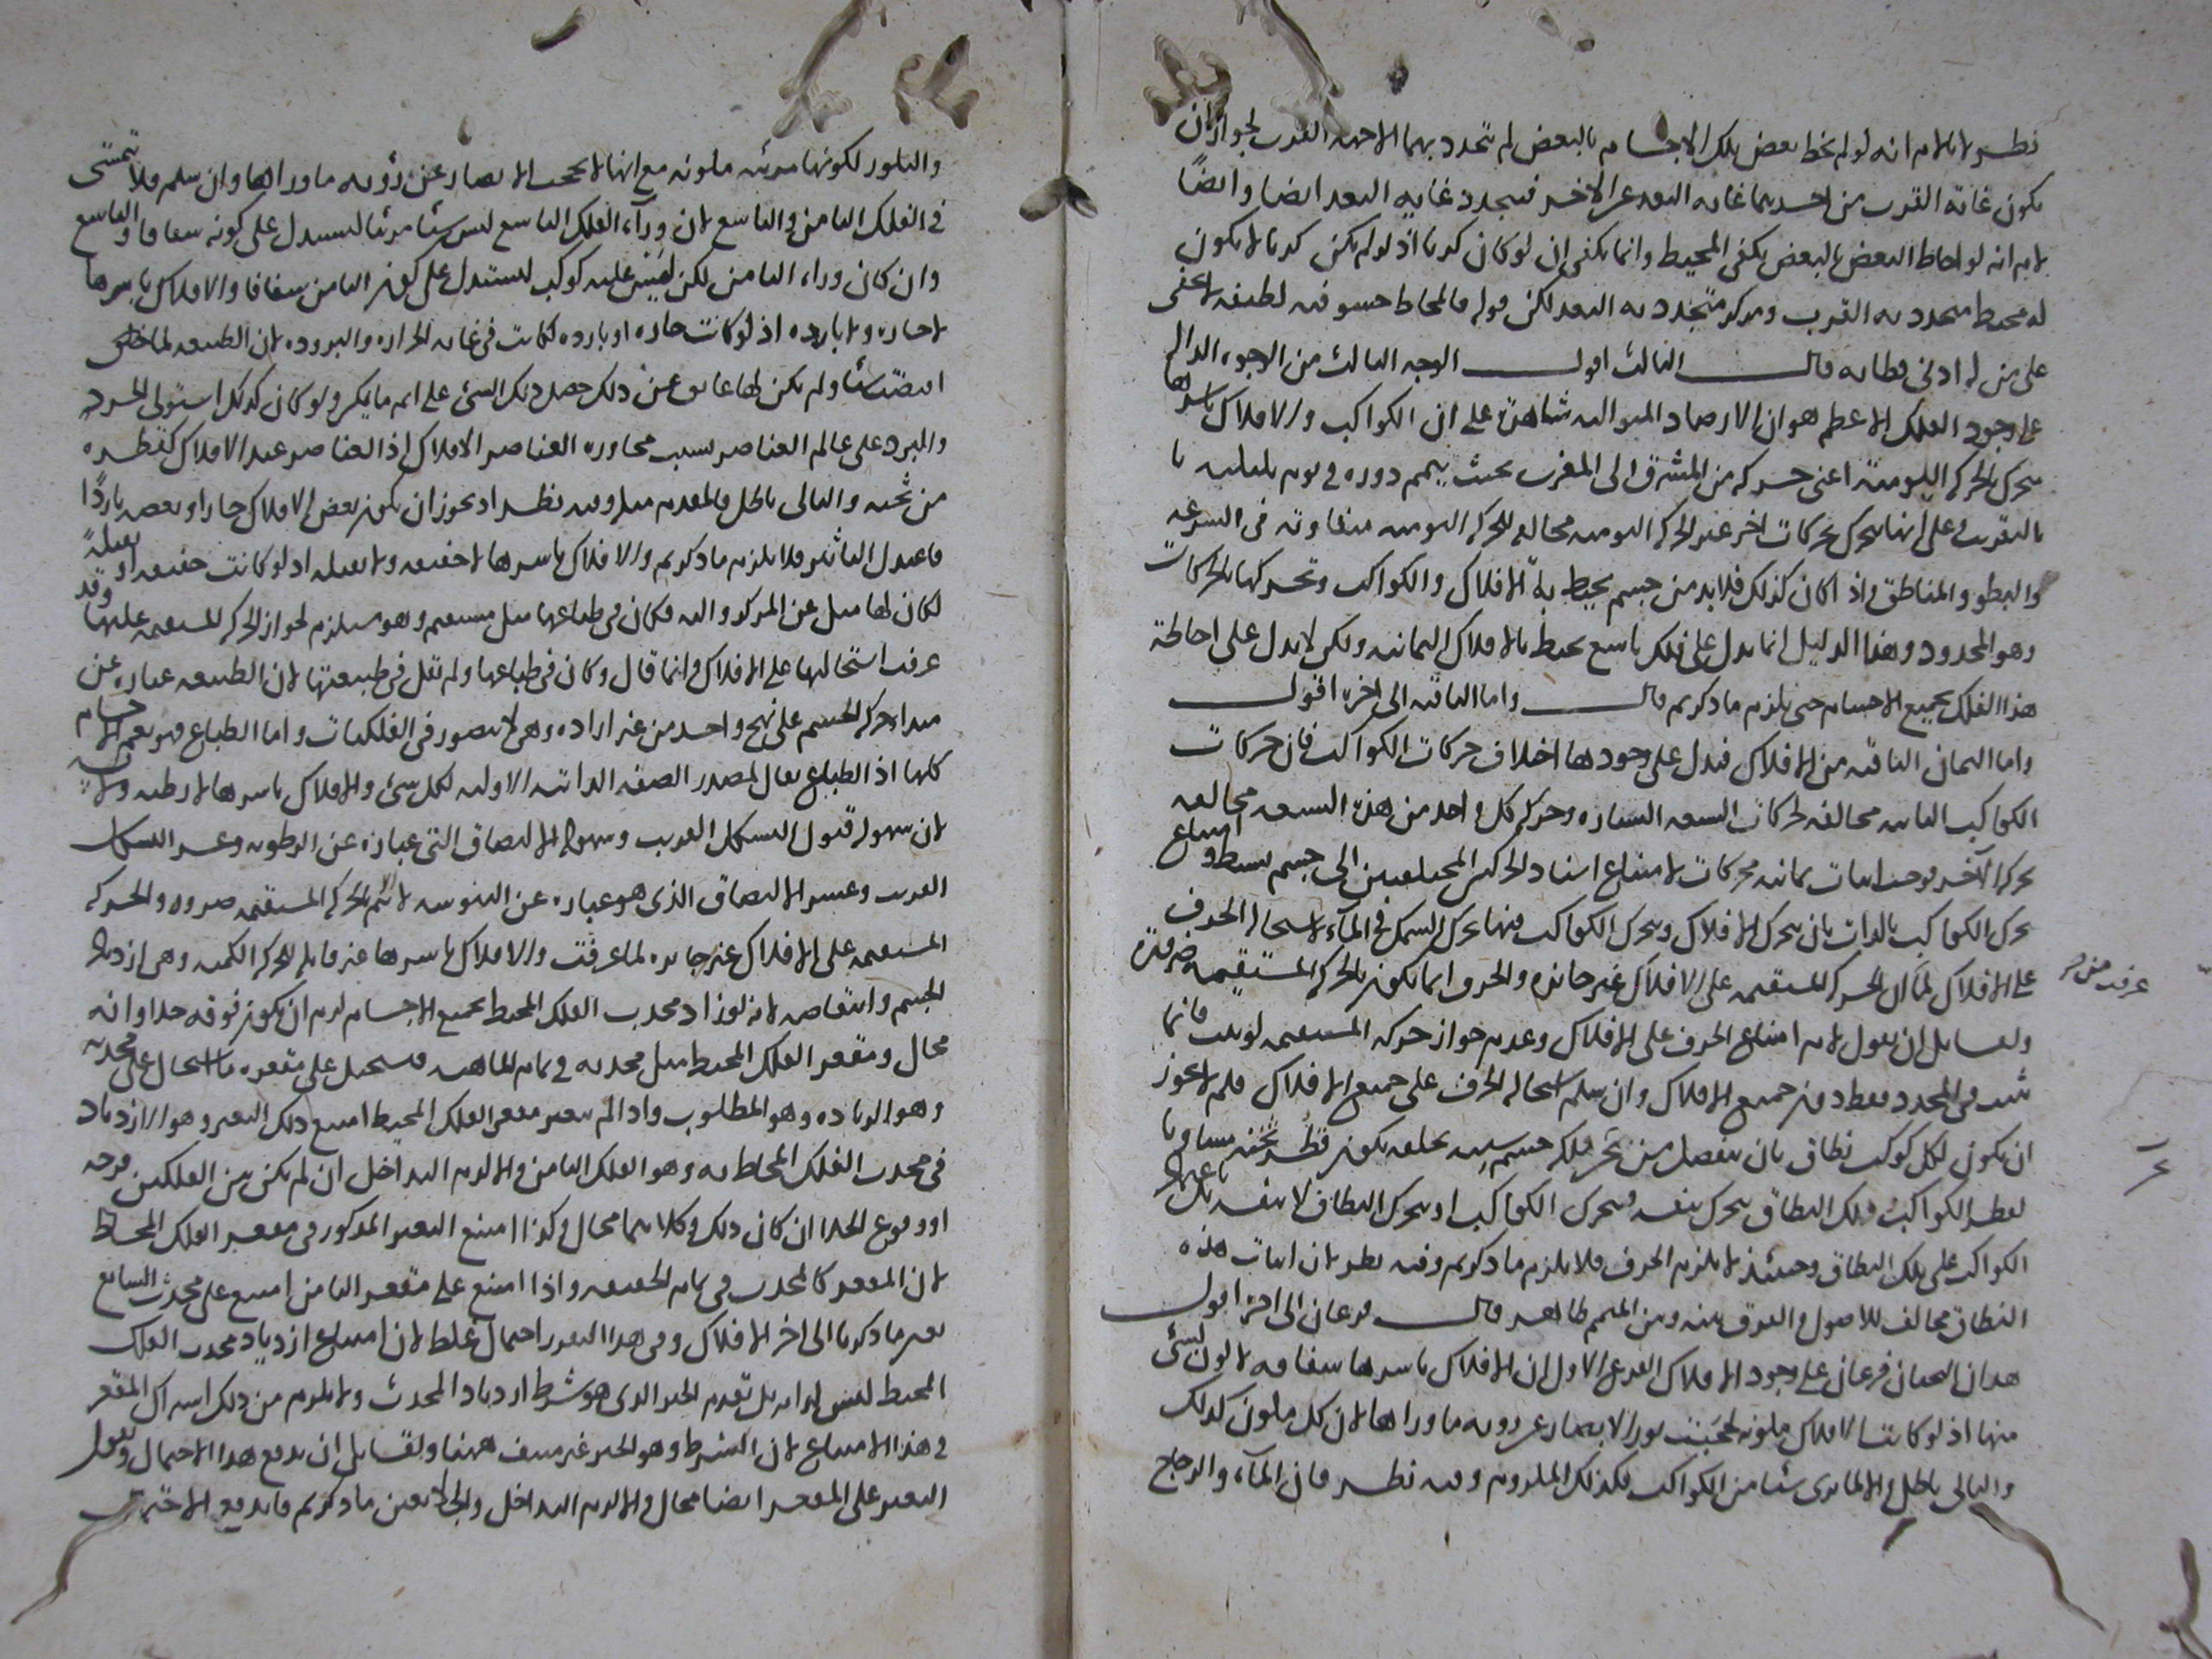 نظر لانا لا نم انه لو لم يحط بعض تلك الاجسام بالبعض لم تتحدد بهما الا جهة القرب لجواز ان
يكون غاية القرب من احدهما غاية البعد عن الاخر فيتحدد غاية البعد ايضا وايضا
لا نم انه لو احاط البعض بالبعض يكفي المحيط وانما يكفي ان لو كان كريا اذ لو لم يكن كريا لا يكون
له محيط يتحدد به القرب ومركز يتحدد به البعد لكن قوله فالمحاط حشو فيه لطيفة لا يخفى
على من له ادنى فطانة قال الثالث اقول الوجه الثالث من الوجوه الدالة
على وجود الفلك الاعظم هو ان الارصاد المتوالية شاهدة على ان الكواكب والافلاك باسرها
يتحرك بالحركة اليومية اعني حركة من المشرق الى المغرب بحيث يتمم دوره في يوم بليلته
بالتقريب وعلى انها يتحرك بحركات اخر غير الحركة اليومية مخالفة للحركة اليومية متفاوتة في السرعة
والبطو والمناطق واذا كان كذلك فلا بد من جسم يحيط بالافلاك والكواكب وتحركها بالحركات
وهو المحدود وهذا الدليل انما يدل على فلك تاسع محيط بالافلاك الثمانية ولكن لا يدل على احاطة
هذا الفلك بجميع الاجسام حتى يلزم ما ذكرتم قال واما الباقية الى اخره اقول
واما الثمان الباقية من الافلاك فيدل على وجودها اختلاف حركات الكواكب فان حركات
الكواكب الثابتة مخالفة لحركات السبعة السيارة وحركة كل واحد من هذه السبعة مخالفة
لحركة الاخر فوجب اثبات ثمانية محركات لامتناع اسناد الحركتين المختلفتين الى جسم بسيط وامتناع
تحرك الكواكب بالذات بان يتحرك الافلاك ويتحرك الكواكب فيها تحرك السمك في الماء لاستحالة الخرق
على الافلاك لما ان الحركة المستقيمة على الافلاك غير جائزة والخرق انما يكون بالحركة المستقيمة
ولقائل ان يقول لا نم امتناع الخرق على الافلاك وعدم جواز حركة المستقيمة لو ثبت فانما
ثبت في المحدد فقط دون جميع الافلاك وان سلم استحالة الخرق على جميع الافلاك فلم لا يجوز
ان يكون لكل كوكب نطاق بان ينفصل من فلكه جسم شبيه بحلقة يكون قطر ثخنه مساويا
لقطر الكواكب وذلك النطاق يتحرك بنفسه فيتحرك الكواكب او يتحرك النطاق لا بنفسه بل
الكواكب على ذلك النطاق وحينئذ لا يلزم الخرق فلا يلزم ما ذكرتم وفيه نظر لان اثبات هذه
النطاق مخالف للاصول والفرق بينه وبين المتمم ظاهر قال فرعان الى اخره اقول
هذان البحثان فرعان على وجود الافلاك الفرع الاول ان الافلاك باسرها شفافة لا لون لشئ
منها اذ لو كانت الافلاك ملونة لحجبت نور الابصار عن رؤية ما وراها لان كل ملون كذلك
والتالي باطل والا لما نرى شيئا من الكواكب فكذلك الملزوم وفيه نظر فان الماء والزجاج
عرفت من
والبلور لكونها مرئية ملونة مع انها لا تحجب الابصار عن رؤية ما وراها وان سلم فلا يتمشى
في الفلك الثامن والتاسع لان وراء الفلك التاسع ليس شيئا مرئيا ليستدل على كونه شفافا والتاسع
وان كان وراء الثامن لكن ليس عليه كوكب ليستدل على كون الثامن شفافا والافلاك باسرها
لا حارة ولا باردة اذ لو كانت حارة او باردة لكانت في غاية الحرارة والبرودة لان الطبيعة لما
اقتضت شيئا ولم يكن لها عائق عن ذلك حصل ذلك الشئ على اتم ما يمكن ولو كان كذلك استولى الحر
والبرد على عالم العناصر بسبب مجاورة العناصر الافلاك اذ العناصر عند الافلاك كقطرة
من والتالي باطل فالمقدم مثله وفيه نظر اذ يجوز ان يكون بعض الافلاك حارا وبعضه باردا
فاعتدل التاثير فلا يلزم ما ذكرتم والافلاك باسرها لا خفيفة ولا ثقيلة اذ لو كانت خفيفة او ثقيلة
لكان لها ميل عن المركز واليه فكان في طباعها ميل مستقيم وهو مستلزم لجواز الحركة المستقيمة عليها وقد
عرفت استحالتها على الافلاك وانما قال وكان في طباعها ولم نقل في طبيعتها لان الطبيعة عبارة عن
مبدا حركة الجسم على نهج واحد من غير ارادة وهي لا يتصور في الفلكيات واما الطباع فهو يعم الاجسام
كلها اذ الطباع يقال لمصدر الصفة الذاتية الاولية لكل شئ والافلاك باسرها لا رطبة ولا يابسة
لان سهولة قبول التشكل الغريب وسهولة الالتصاق التي عبارة عن الرطوبة وعسر التشكل
الغريب وعسر الالتصاق الذي هو عبارة عن اليبوسة لا يتم الا بالحركة المستقيمة ضرورة والحركة
المستقيمة على الافلاك غير جائزة لما عرفت والافلاك باسرها غير قابلة للحركة الكمية وهي ازدياد
الجسم وانتقاصه لانه لو زاد محدب الفلك المحيط بجميع الاجسام لزم ان يكون فوقه خلا وانه
محال ومقعر الفلك المحيط مثل محدبه في تمام الماهية فيستحيل على مقعره ما استحال على محدبه
وهو الزيادة وهو المطلوب واذا لم يتغير مقعر الفلك المحيط امتنع ذلك التغير وهو الازدياد
في محدب الفلك المحاط به وهو الفلك الثامن والا لزم التداخل ان لم يكن بين الفلكين فرجة
او وقوع الخلا ان كان ذلك وكلاهما محال وكذا امتنع التغير المذكور في مقعر الفلك المحاط
لان المقعر كالمحدب في تمام الحقيقة واذا امتنع على مقعر الثامن امتنع على محدب السابع
بعين ما ذكرنا الى اخر الافلاك وفي هذا التقرير احتمال غلط لان امتناع ازدياد محدب الفلك
المحيط ليس لذاته بل لعدم الحيز الذي هو شرط ازدياد المحدب ولا يلزم من ذلك اشتراك المقعر
في هذا الامتناع لان الشرط وهو الحيز غير منتف ههنا ولقائل ان يدفع هذا الاحتمال ويقول
التغير على المقعر ايضا محال والا لزم التداخل والخلا بعين ما ذكرتم فاندفع الاحتمال